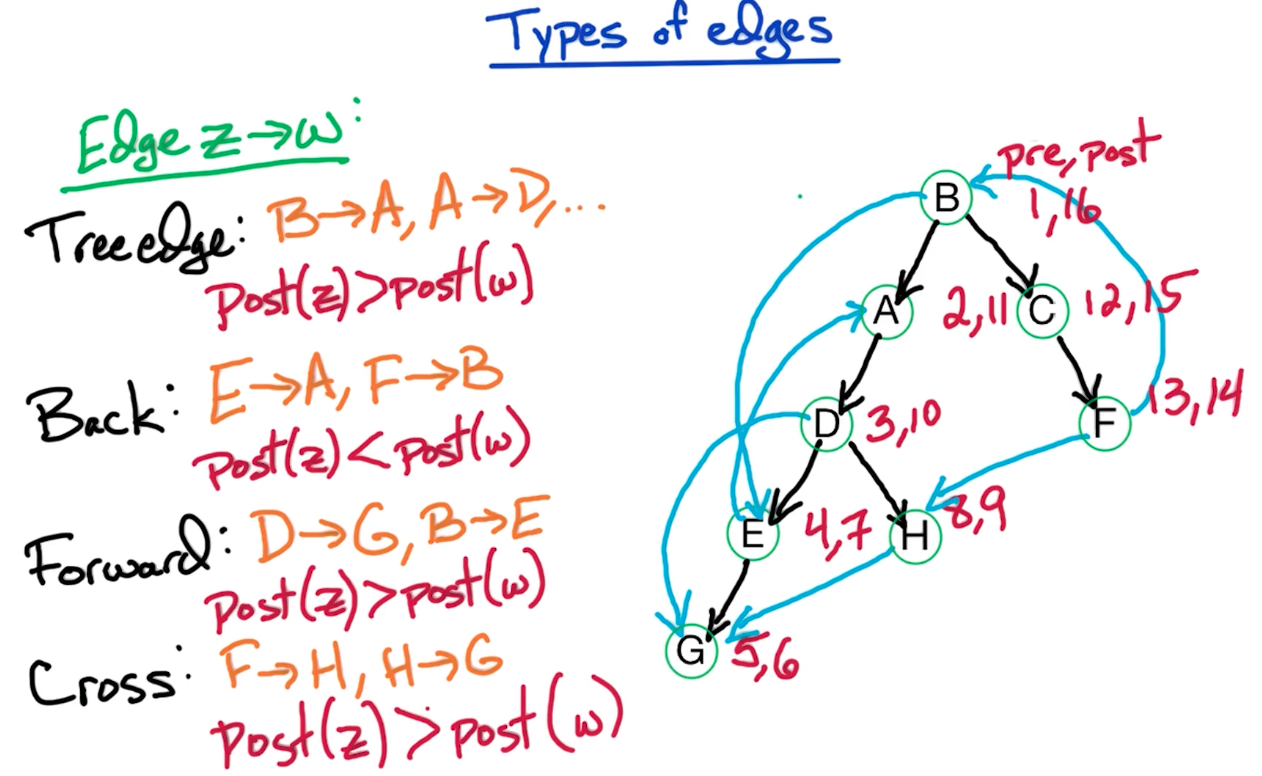 Types of edges
Edge z→w:
Tree edge: B→A, A→D,...
Post(z)>post(w)
Back: E→A, F→B
Post(z)<Post(w)
Forward: D→G, B→E
Post(z)>post(w)
Cross: F→H, H→G
Post(z)>post(w)
pre, post
B 1,16
A 2,11
C 12,15
D 3,10
F 13,14
E 4,7
H 8,9
G 5,6